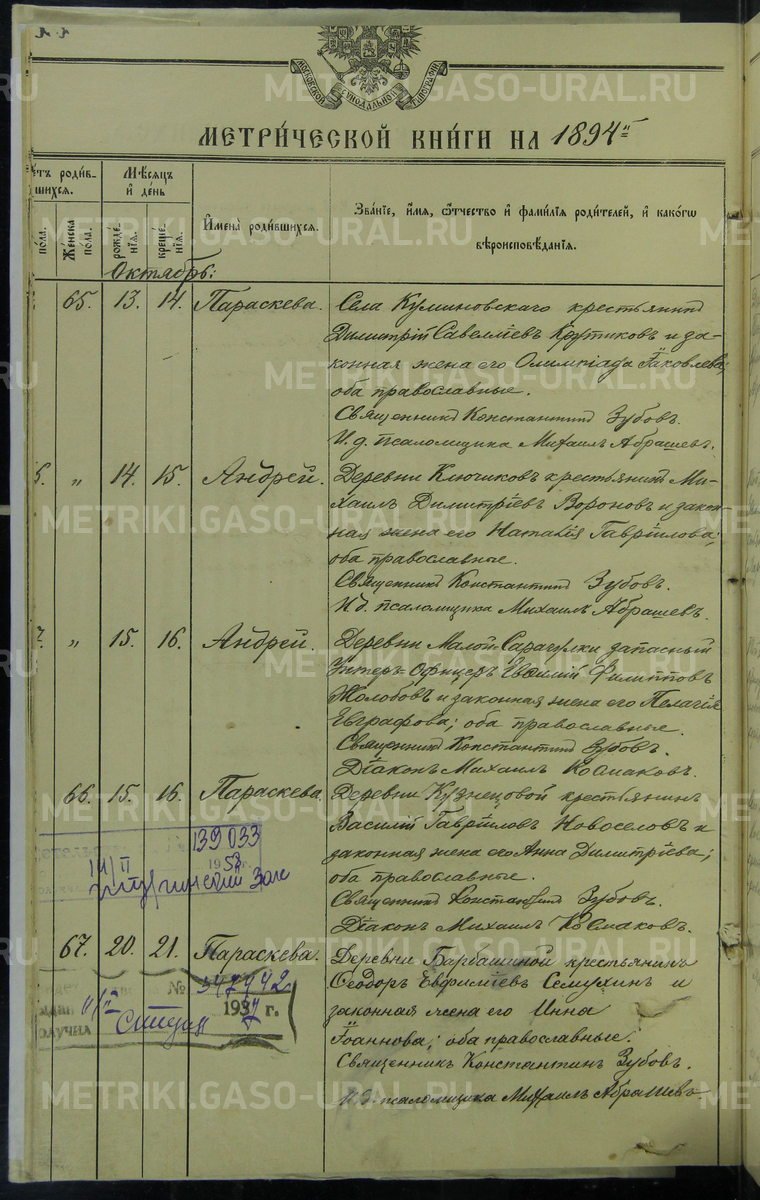 МОСКОВСКОЙ СѴНОДАЛЬНОЙ ТИПОГРАФІИ
МЕТРИ́ЧЕСКОЙ КНИ́ГИ НА 1894
етъ роди́в-
шихся.
Мѣ́сяцъ
и҆ де́нь
И҆мена̀ роди́вшихся.
Зва́нїе, и҆́мя, ѻ҆́тчество и҆ фами́лїя роди́телей, и҆ како́гѡ
вѣроисповѣ́данїя.
по́ла.
Же́нска
по́ла.
рожде́-
нїя.
креще́-
нїя.
Октябрь:
65. 13. 14. Параскева.
Села Куминовскаго крестьянинъ
Димитрій Савеліевъ Крутиковъ и за-
конная жена его Олимпіада Іаковлева;
оба православные.
Священникъ Константинъ Зубовъ.
И. д. псаломщика Михаилъ Абрашевъ.
5. " 14. 15. Андрей.
Деревни Ключиковъ крестьянинъ Ми-
хаилъ Димитріевъ Вороновъ и закон-
ная жена его Наталія Гавріилова;
оба православные.
Священникъ Константинъ Зубовъ.
И. д. псаломщика Михаилъ Абрашевъ.
" 15. 16. Андрей.
Деревни Малой Сарачулки запасный
Унтеръ-Офицеръ Евфимій Филипповъ
Жолобовъ и законная жена его Пелагія
Евграфова; оба православные.
Священникъ Константинъ Зубовъ.
Діаконъ Михаилъ Коəмаковъ.
66. 15. 16. Параскева.
Деревни Кузнецовой крестьянинъ
Василій Гавріиловъ Новоселовъ и
законная жена его Анна Димитріева;
оба православные.
Священникъ Константинъ Зубовъ.
Діаконъ Михаилъ
139033
1953 г.
67. 20. 21. Параскева.
Деревни Барбашиной крестьянинъ
Ѳеодоръ Евфиміевъ Семухинъ и
законная жена его Инна
Іоаннова; оба православные.
Священникъ Константинъ Зубовъ.
И. д. псаломщика Михаилъ Абрашевъ
№ 342942
1937 г.
ОЛУЧЕНА
METRIKI.GASO-URAL.RU